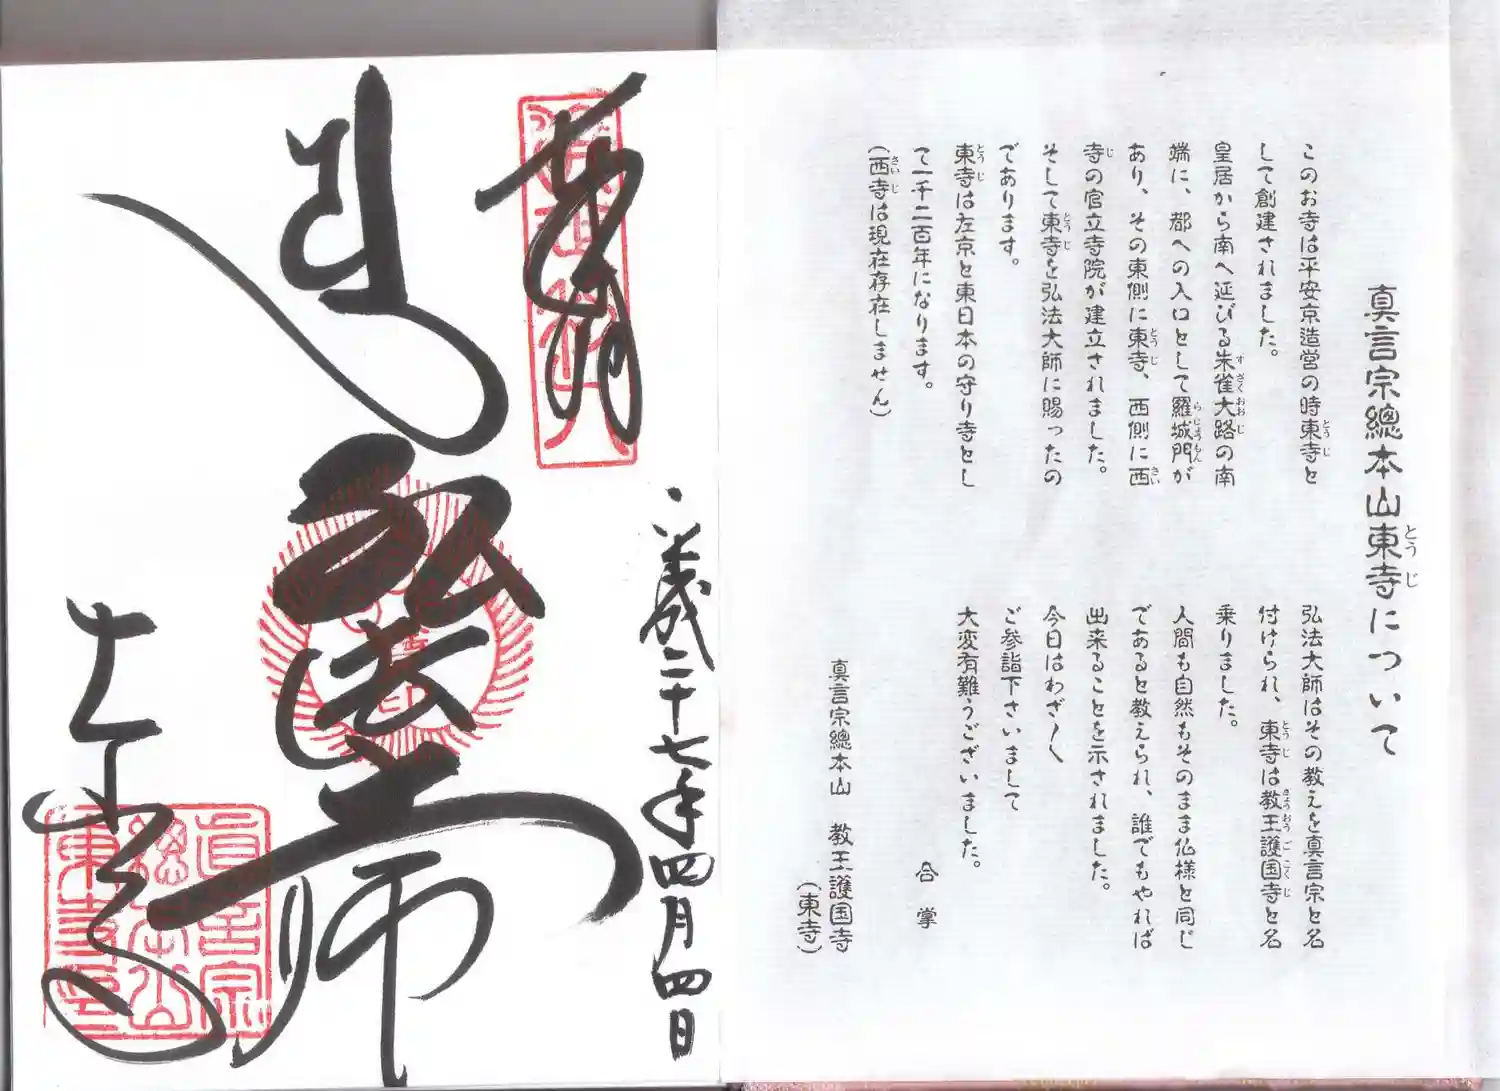 真言宗總本山東寺について
このお寺は平安京造営の時東寺と
して創建されました。
皇居から南へ延びる朱雀大路の南
端に、都への入口として羅城門が
あり、その東側に東寺、西側に西
寺の官立寺院が建立されました。
そして東寺を弘法大師に賜ったの
であります。
東寺は左京と東日本の守り寺とし
て一千二百年になります。
(西寺は現在存在しません)
弘法大師はその教えを真言宗と名
付けられ、東寺は教王護国寺と名
乗りました。
人間も自然もそのまま仏様と同じ
であると教えられ、誰でもやれば
出来ることを示されました。
今日はわざ〱
ご参詣下さいまして
大変有難うございました。
合掌
真言宗總本山 教王護国寺
(東寺)
奉拝
平成二十七年四月四日
弘法大師
東寺
眞言宗
總本山
東寺印